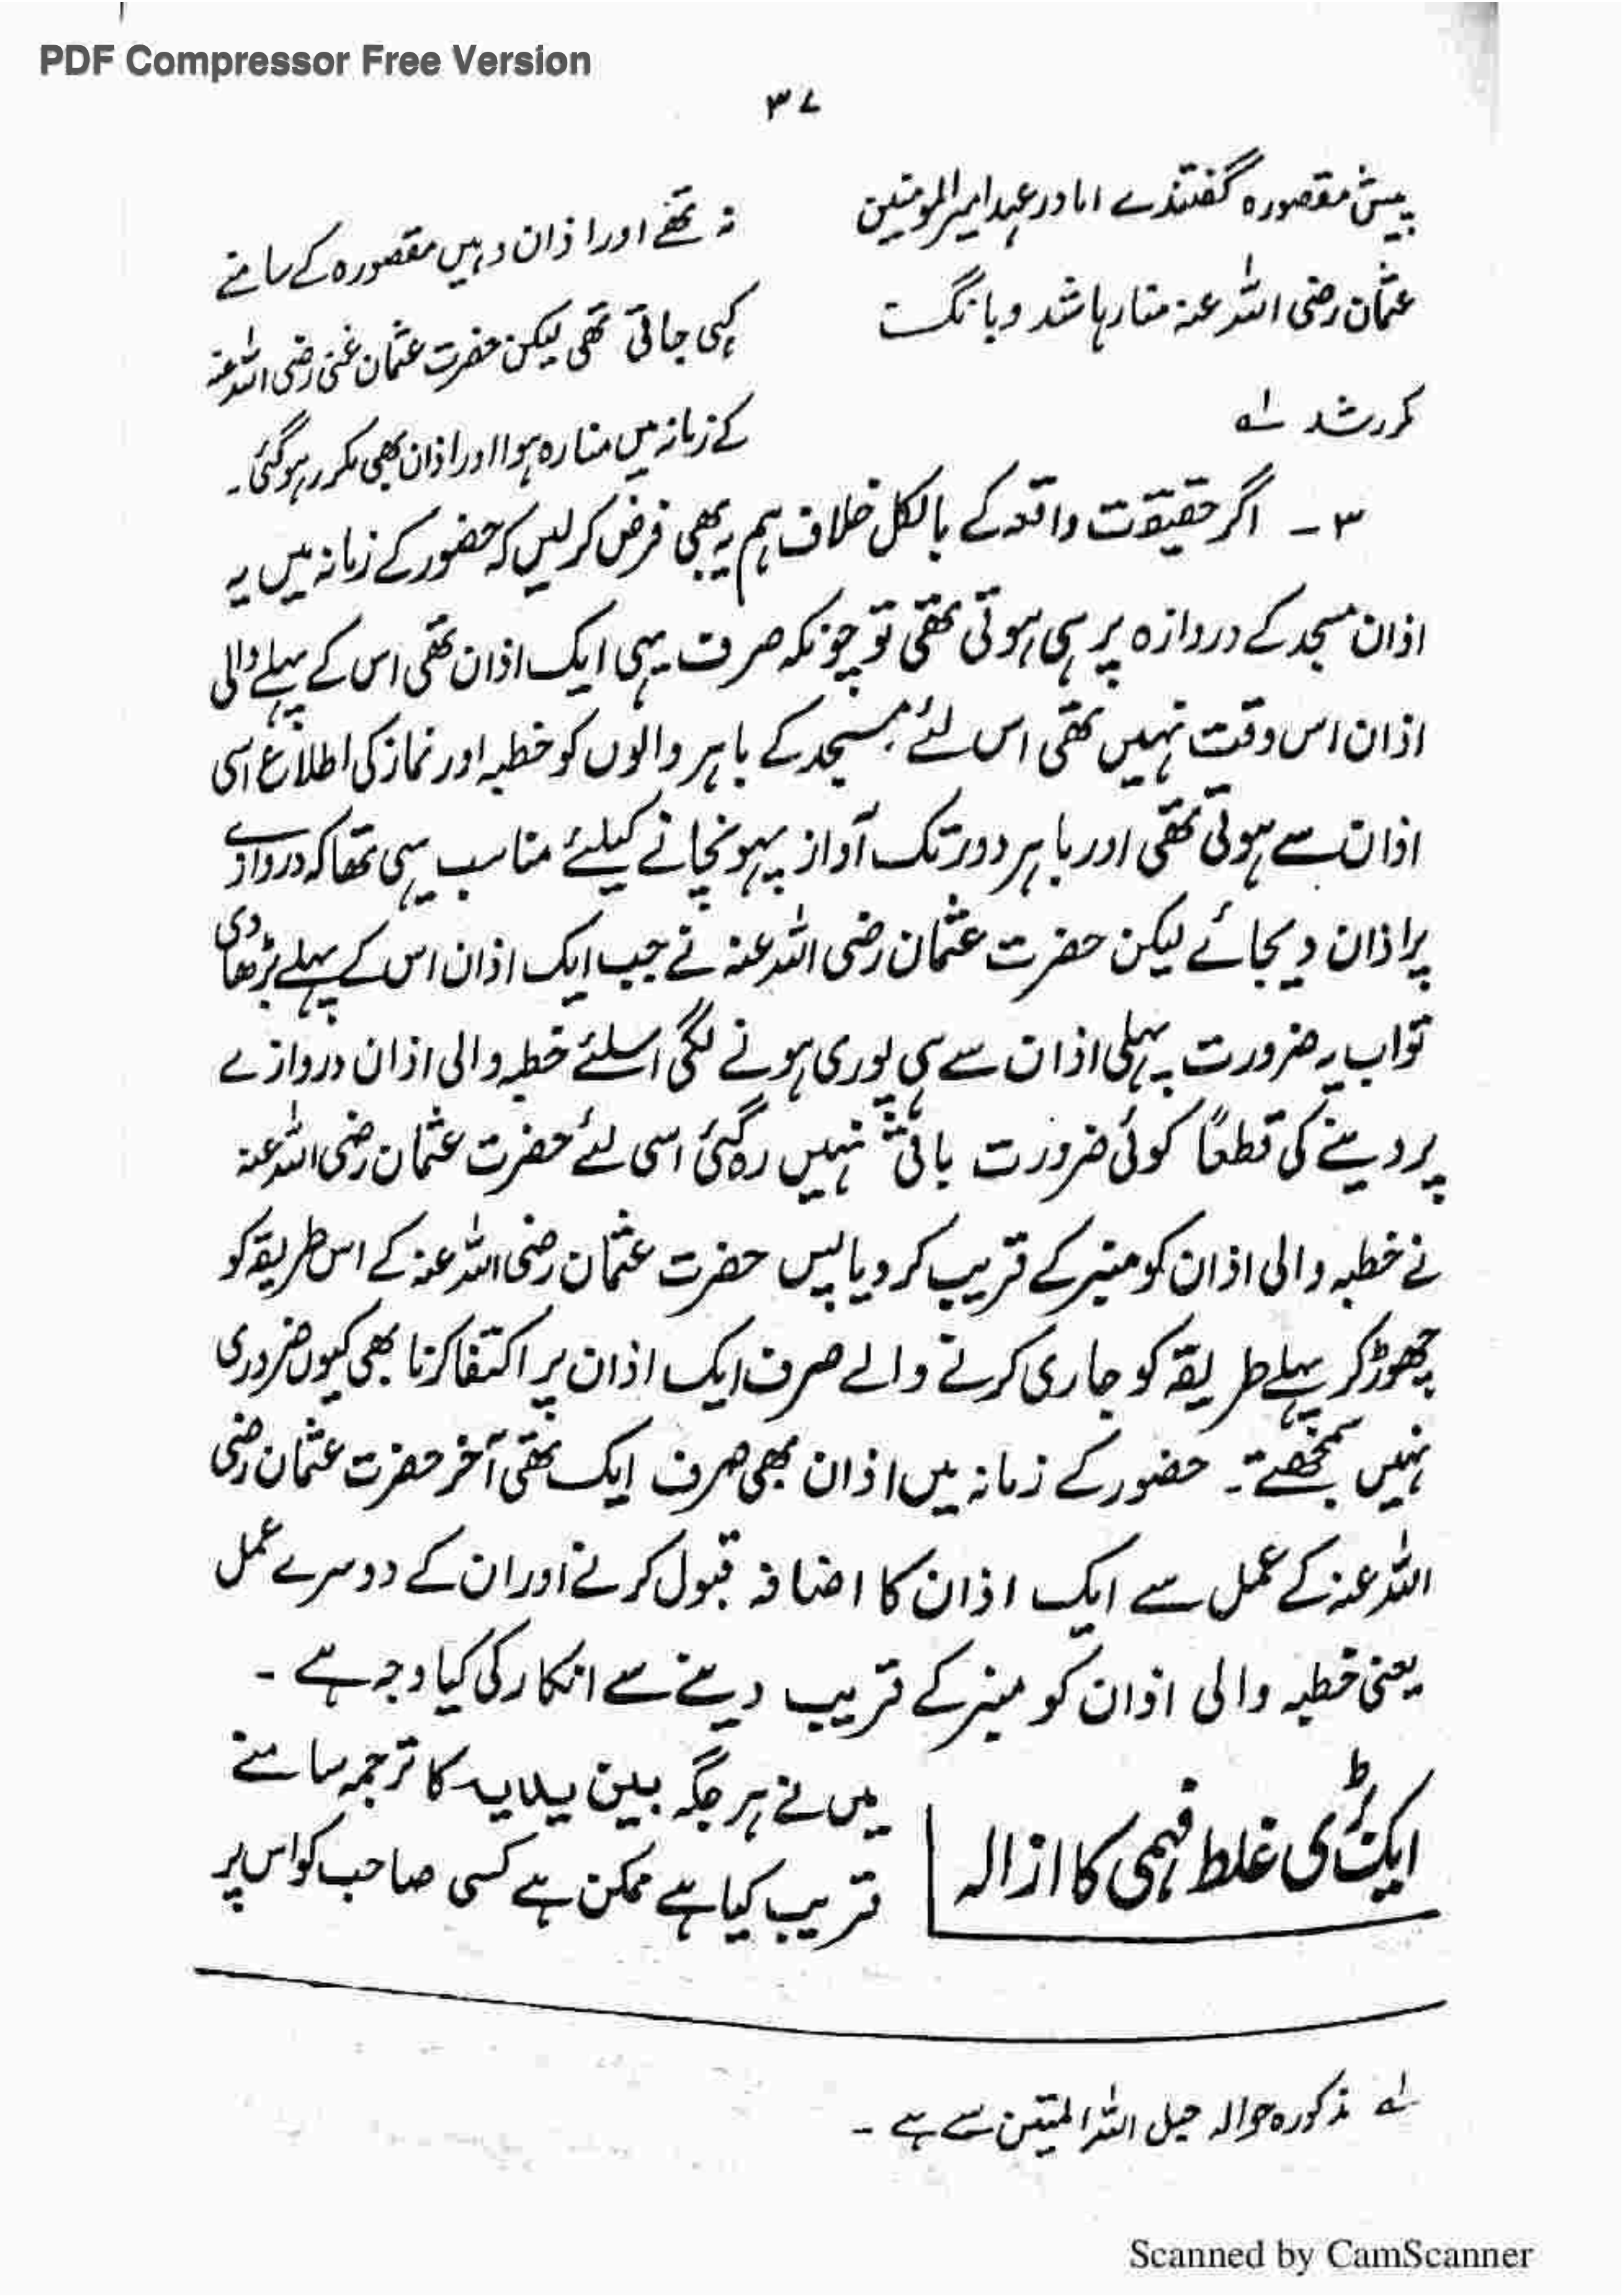 PDF Compressor Free Version
۳۷
پیش مقصورہ گفتندے اما در عہد امیر المومنین
عثمان رضی اللہ عنہ منارہا شد و بانگ
مکرر شد لہ
نہ تھے اور اذان وہیں مقصورہ کے سامنے
کہی جاتی تھی لیکن حضرت عثمان غنی رضی اللہ عنہ
کے زمانہ میں منارہ ہوا اور اذان بھی مکرر ہوگئی۔
۳ ۔ اگر حقیقت واقعہ کے بالکل خلاف ہم یہ بھی فرض کرلیں کہ حضور کے زمانہ میں یہ
اذان مسجد کے دروازہ پر ہی ہوتی تھی تو چونکہ صرف یہی ایک اذان تھی اس کے پہلے والی
اذان اس وقت نہیں تھی اس لئے مسجد کے باہر والوں کو خطبہ اور نماز کی اطلاع اسی
اذان سے ہوتی تھی اور باہر دور تک آواز پہونچانے کیلئے مناسب یہی تھا کہ دروازے
پر اذان دیجائے لیکن حضرت عثمان رضی اللہ عنہ نے جب ایک اذان اس کے پہلے بڑھا دی
تو اب یہ ضرورت پہلی اذان سے ہی پوری ہونے لگی اسلئے خطبہ والی اذان دروازے
پر دینے کی قطعاً کوئی ضرورت باقی نہیں رہ گئی اسی لئے حضرت عثمان رضی اللہ عنہ
نے خطبہ والی اذان کو منبر کے قریب کر دیا پس حضرت عثمان رضی اللہ عنہ کے اس طریقہ کو
چھوڑ کر پہلے طریقہ کو جاری کرنے والے صرف ایک اذان پر اکتفا کرنا بھی کیوں ضروری
نہیں سمجھتے۔ حضور کے زمانہ میں اذان بھی صرف ایک تھی آخر حضرت عثمان رضی
اللہ عنہ کے عمل سے ایک اذان کا اضافہ قبول کرنے اور ان کے دوسرے عمل
یعنی خطبہ والی اذان کو منبر کے قریب دینے سے انکار کی کیا وجہ ہے ۔
ایک بڑی غلط فہمی کا ازالہ
میں نے ہر جگہ بین یدیہ کا ترجمہ سامنے
قریب کیا ہے ممکن ہے کسی صاحب کو اس پر
لہ مذکورہ حوالہ حبل اللہ المتین سے ہے ۔
Scanned by CamScanner